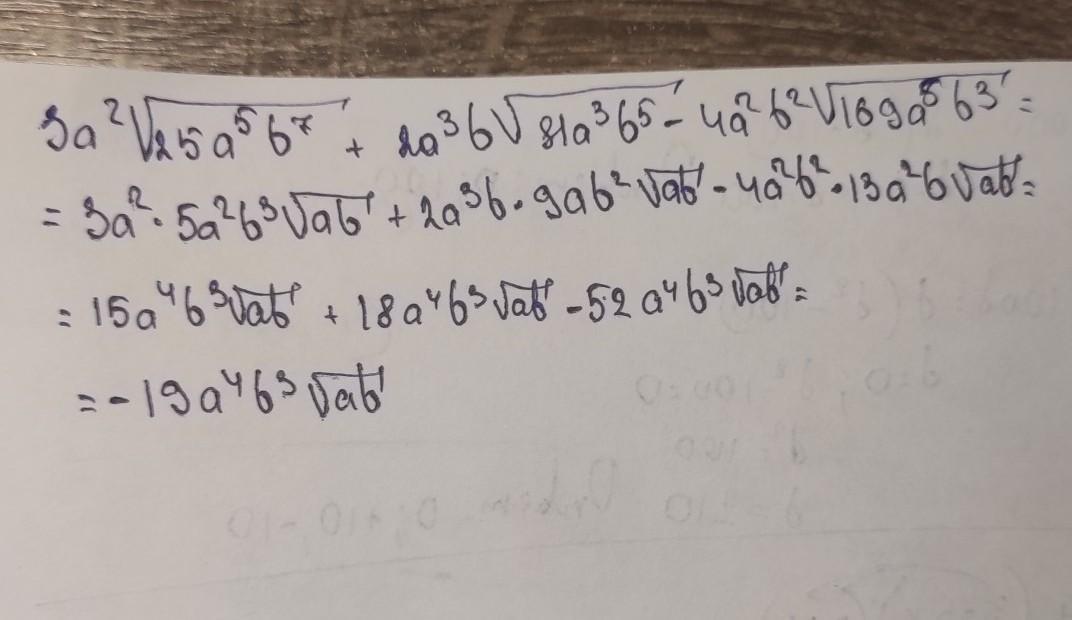 3a²√25a⁵b⁷ + 2a³b√81a³b⁵ - 4a²b²√169a⁵b³ =
= 3a²·5a²b³√ab + 2a³b·9ab²√ab - 4a²b²·13a²b√ab =
= 15a⁴b³√ab + 18a⁴b³√ab - 52a⁴b³√ab =
= -19a⁴b³√ab